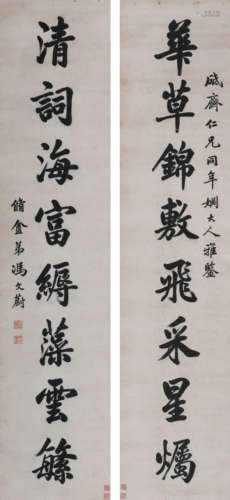 華草錦敷飛采星燭
誠齋仁兄同年姻大人雅鑒
清詞海富縟藻雲繇
脩盦弟馮文蔚